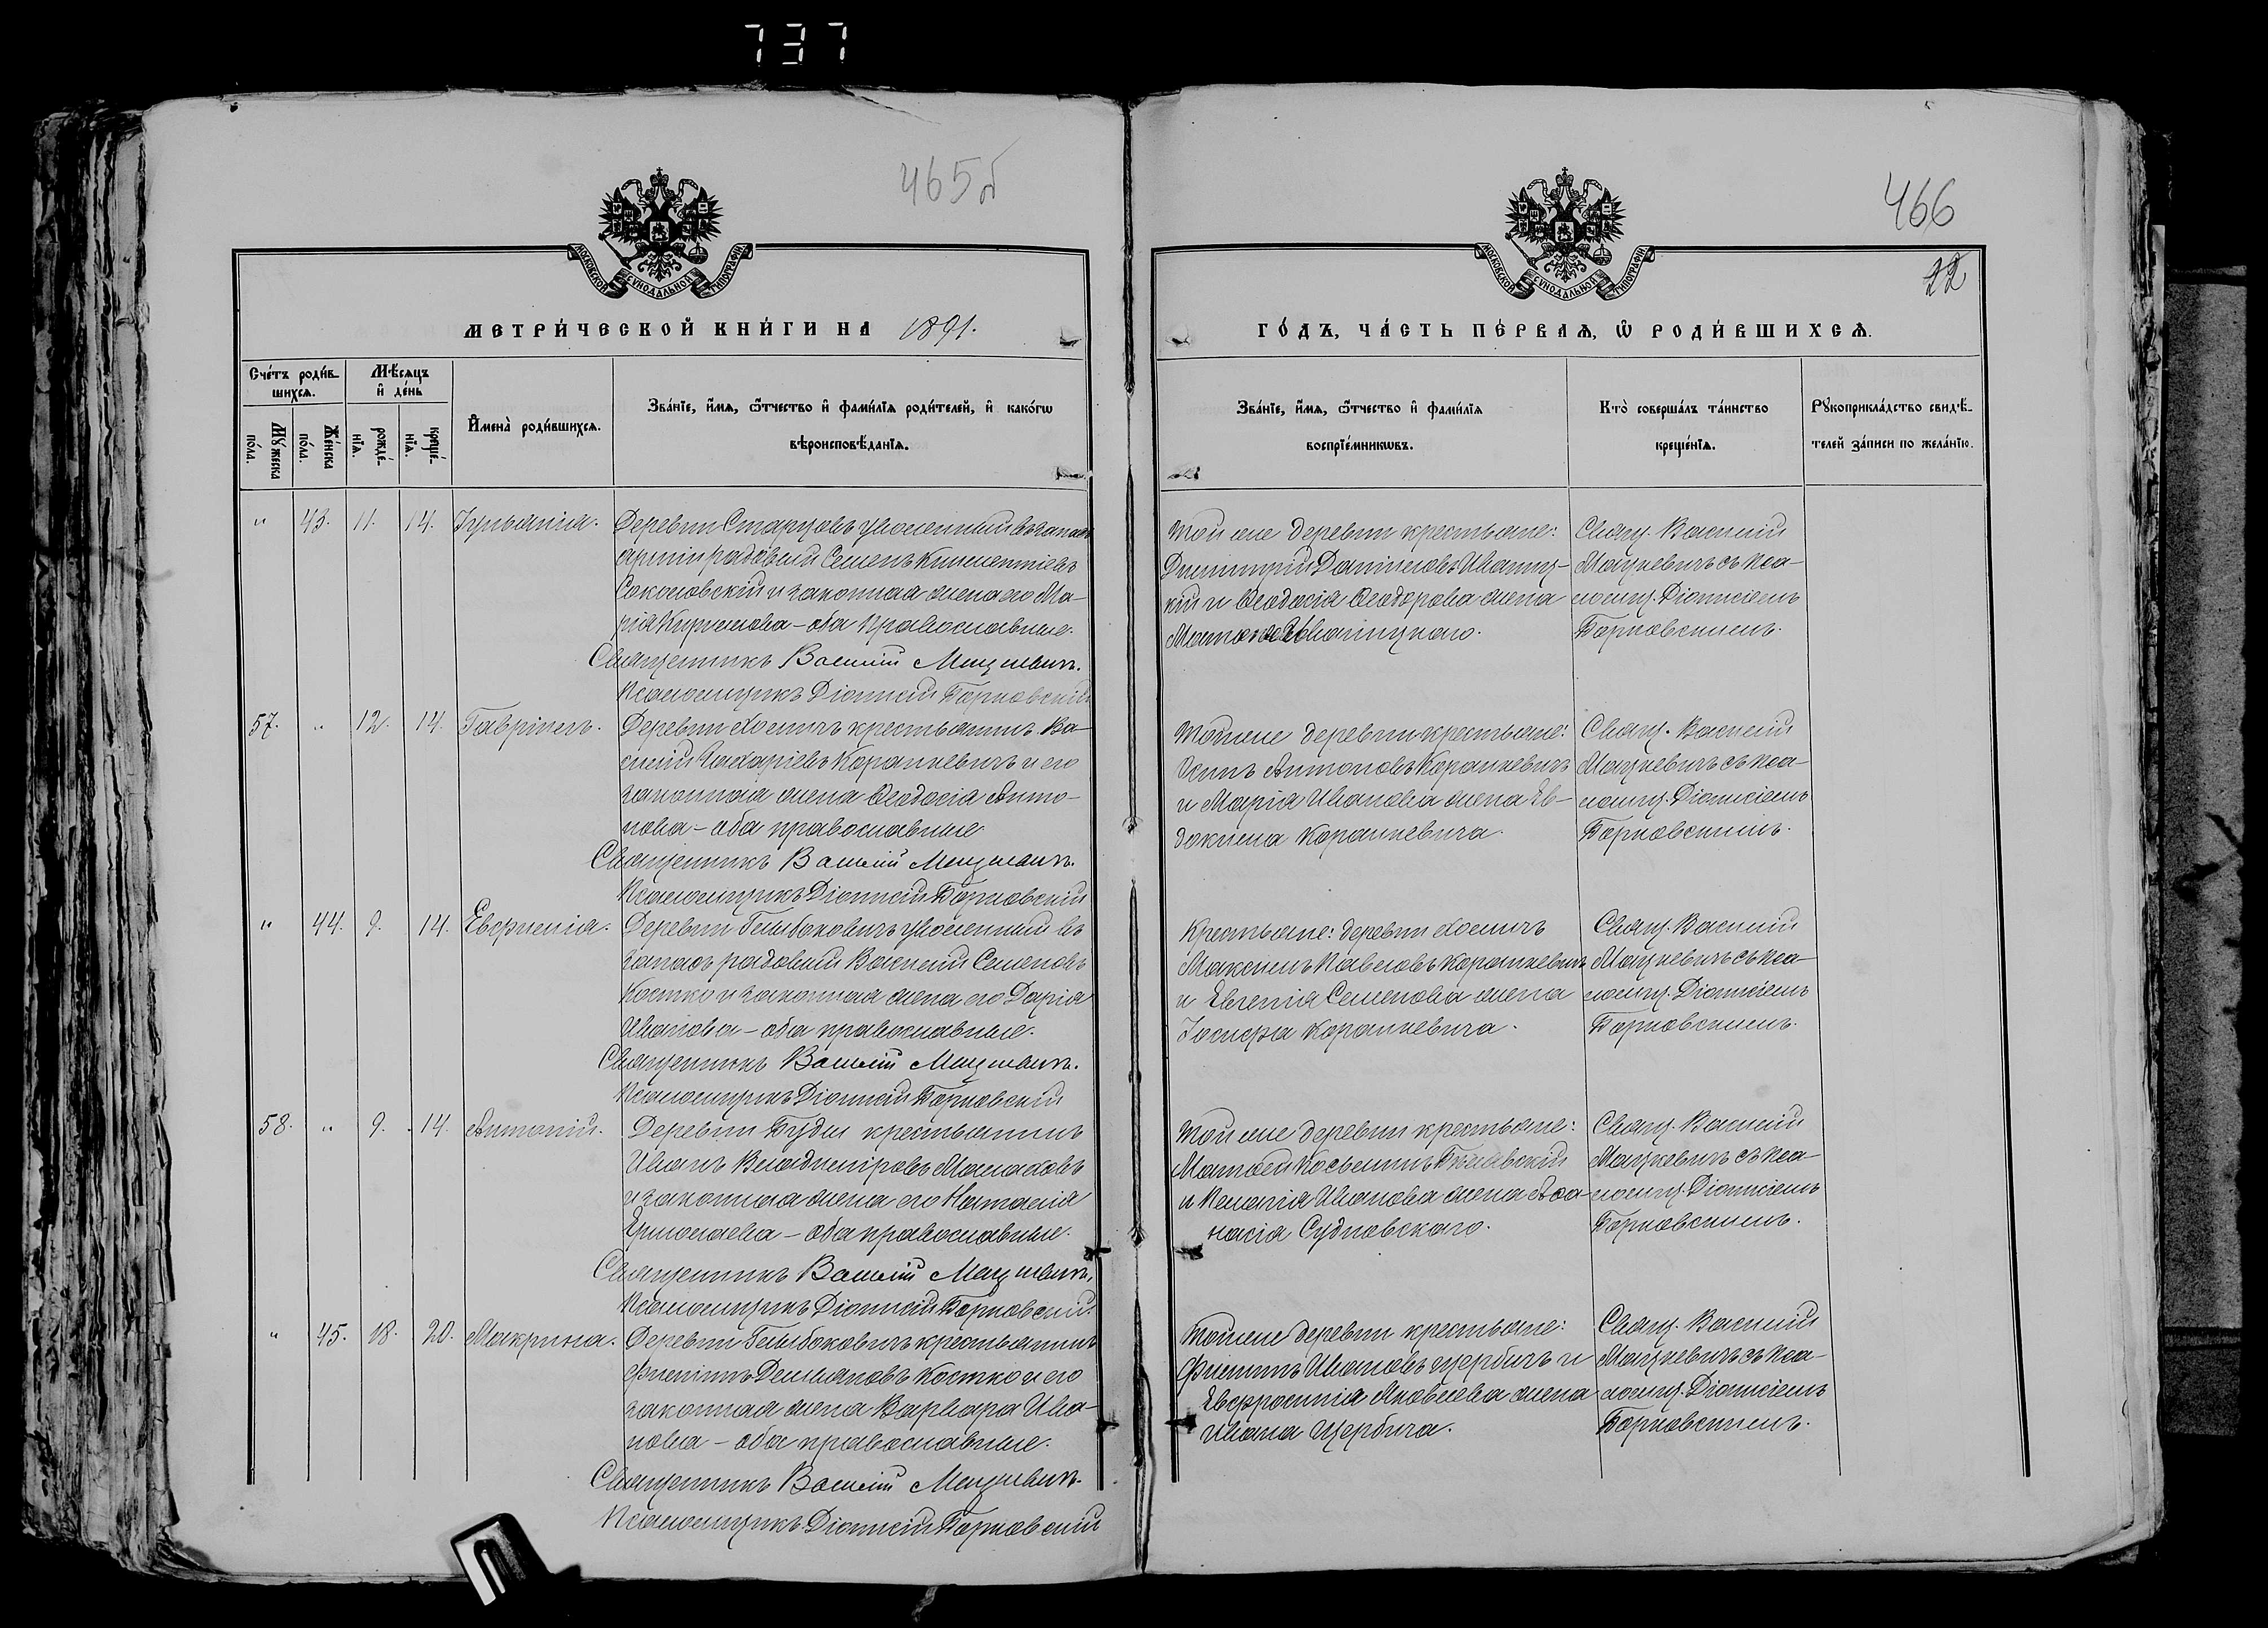 737
465б
466
22
МОСКОВСКОЙ СѴНОДАЛЬНОЙ ТИПОГРАФІИ
МОСКОВСКОЙ СѴНОДАЛЬНОЙ ТИПОГРАФІИ
МЕТРИ́ЧЕСКОЙ КНИ́ГИ НА 1891.
ГО́ДЪ, ЧА́СТЬ ПЕ́РВАѦ, Ѽ РОДИ́ВШИХСѦ.
Сче́тъ роди́в-
шихсѧ.
Мѣ́сѧцъ
и҆ де́нь
Мꙋ́жеска
по́ла.
Же́нска
по́ла.
рожде́-
нїѧ.
креще́-
нїѧ.
И҆мена̀ роди́вшихсѧ.
Зва́нїе, и҆́мѧ, ѻ҆́тчество и҆ фами́лїѧ роди́телей, и҆ како́гѡ
вѣроисповѣ́данїѧ.
Зва́нїе, и҆́мѧ, ѻ҆́тчество и҆ фами́лїѧ
воспрїе́мникѡвъ.
Кто̀ соверша́лъ та́инство
креще́нїѧ.
Рꙋкоприкла́дство свидѣ́-
телей за́писи по жела́нїю.
" 43. 11. 14. Іуліанія.
Деревни Старцовъ уволенный въ запасъ
арміи рядовый Семенъ Климентіевъ
Соколовскій и законная жена его Ма-
рія Кириллова – оба православные.
Священникъ Василій Мацкевичъ.
Псаломщикъ Діонисій Борковскій
Той же деревни крестьяне:
Димитрій Даниловъ Иваниц-
кій и Ѳеодосія Ѳеодорова жена
Иваницкаго.
Свящ. Василій
Мацкевичъ съ пса-
ломщ. Діонисіемъ
Борковскимъ.
57. " 12. 14. Гавріилъ.
Деревни Хоемичъ крестьянинъ Ва-
силій Захаріевъ Корашкевичъ и его
законная жена Ѳеодосія Анто-
нова – оба православные
Священникъ Василій Мацкевичъ.
Псаломщикъ Діонисій Борковскій
Той же деревни крестьяне:
Осипъ Антоновъ Корашкевичъ
и Марія Иванова жена Ев-
докима Корашкевича.
Свящ. Василій
Мацкевичъ съ пса-
ломщ. Діонисіемъ
Борковскимъ.
" 44. 9. 14. Евфимія.
Деревни Глыбоковичъ уволенный въ
запасъ рядовый Василій Семеновъ
Костко и законная жена его Дарія
Иванова – оба православные.
Священникъ Василій Мацкевичъ.
Псаломщикъ Діонисій Борковскій
Крестьяне: деревни Хоемичъ
Максимъ Павловъ Корашкевичъ
и Евгенія Семенова жена
Іосифа Корашкевича.
Свящ. Василій
Мацкевичъ съ пса-
ломщ. Діонисіемъ
Борковскимъ.
58. " 9. 14. Антоній.
Деревни Буды крестьянинъ
Иванъ Владиміровъ Малаховъ
и законная жена его Наталія
Ермолаева – оба православные.
Священникъ Василій Мацкевичъ.
Псаломщикъ Діонисій Борковскій.
Той же деревни крестьяне:
Матѳей Косьминъ
и Пелагія Иванова жена Аѳа-
насія Судновскаго.
Свящ. Василій
Мацкевичъ съ пса-
ломщ. Діонисіемъ
Борковскимъ.
" 45. 18. 20. Макрина.
Деревни Глыбоковичъ крестьянинъ
Филиппъ Демьяновъ Костко и его
законная жена Варвара Ива-
нова – оба православные.
Священникъ Василій Мацкевичъ.
Псаломщикъ Діонисій Борковскій
Той же деревни крестьяне:
Филиппъ Ивановъ Щербичъ и
Евфросинія Яковлева жена
Ивана Щербича.
Свящ. Василій
Мацкевичъ съ пса-
ломщ. Діонисіемъ
Борковскимъ.